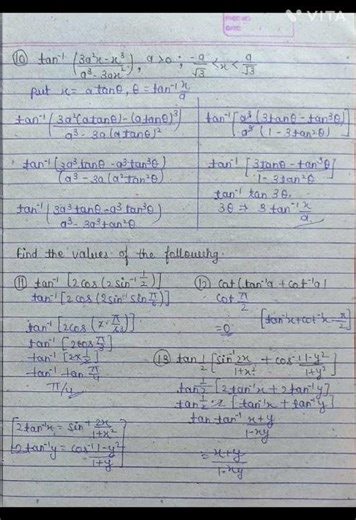 VITA
⑩ tan⁻¹ (3a²x-x³ / a³-3ax²), a>0 ; -a/√3 < x < a/√3
put x = a tanθ, θ = tan⁻¹ x/a
tan⁻¹ (3a²(a tanθ) - (a tanθ)³ / a³ - 3a (a tanθ)²)
tan⁻¹ (3a³tanθ - a³tan³θ / a³ - 3a (a²tan²θ))
tan⁻¹ (3a³tanθ - a³tan³θ / a³ - 3a³tan²θ)
tan⁻¹ [a³(3tanθ - tan³θ) / a³(1 - 3tan²θ)]
tan⁻¹ [3tanθ - tan³θ / 1 - 3tan²θ]
tan⁻¹ tan 3θ.
3θ ⇒ 3 tan⁻¹ x/a
Find the values of the following.
⑪ tan⁻¹ [2cos(2sin⁻¹ 1/2)]
tan⁻¹ [2cos(2sin⁻¹ sin π/6)]
tan⁻¹ [2cos(2·π/6)]
tan⁻¹ [2cos π/3]
tan⁻¹ [2x1/2]
tan⁻¹ tan π/4
π/4
⑫ cot(tan⁻¹a + cot⁻¹a)
cot π/2
=0
[tan⁻¹x+cot⁻¹x = π/2]
⑬ tan 1/2 [sin⁻¹ 2x/1+x² + cos⁻¹ 1-y²/1+y²]
tan 1/2 [2tan⁻¹x + 2tan⁻¹y]
tan 1/2 ·2 [tan⁻¹x + tan⁻¹y]
tan tan⁻¹ x+y / 1-xy
= x+y / 1-xy
[2tan⁻¹x = sin⁻¹ 2x/1+x²
2tan⁻¹y = cos⁻¹ 1-y²/1+y]